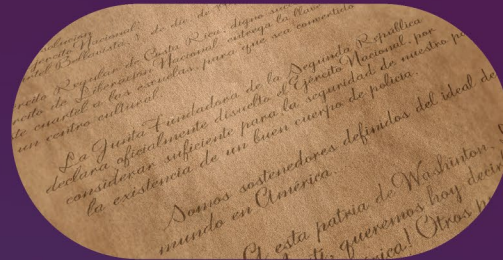 Nacional, de dic. de
Cuartel Bellavista
Regular de Costa Rica, digno
de Liberación Nacional entrega la llave
cuartel a las escuelas, para que sea convertido
un centro cultural.
La Junta Fundadora de la Segunda República
declara oficialmente disuelto el Ejército Nacional, por
considerar suficiente para la seguridad de nuestro
la existencia de un buen cuerpo de policía.
Somos sostenedores definidos del ideal de
mundo en América.
A esta patria de Washinton,
queremos hoy decir
Otros